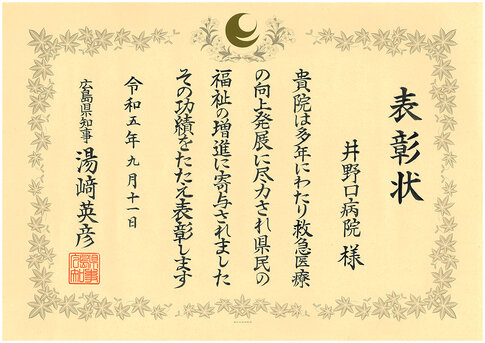 表彰状
井野口病院 様
貴院は多年にわたり救急医療
の向上発展に尽力され県民の
福祉の増進に寄与されました
その功績をたたえ表彰します
令和五年九月十一日
広島県知事 湯﨑英彦